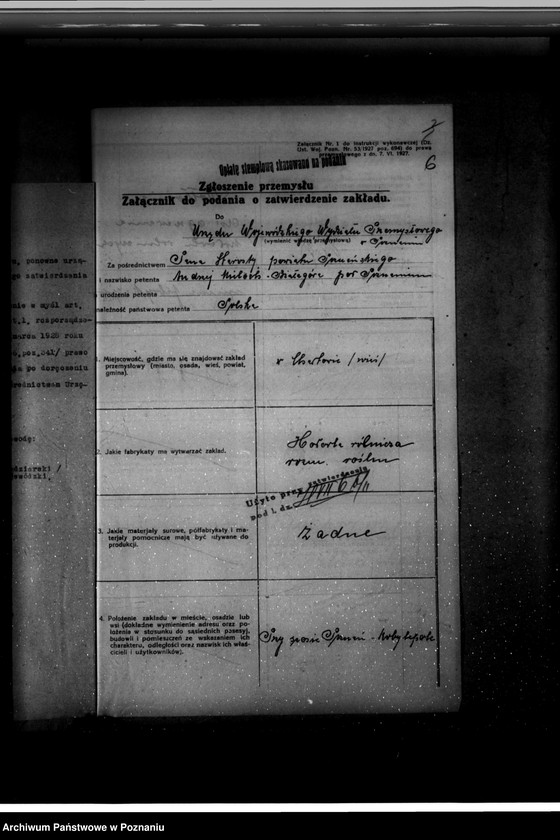 6
Załącznik Nr. 1 do instrukcji wykonawczej (Dz.
Ust. Woj. Pozn. Nr. 53/1927 poz. 694) do prawa
z dn. 7. VI. 1927.
Opłatę stemplową skasowano na podaniu
Zgłoszenie przemysłu
Załącznik do podania o zatwierdzenie zakładu.
Do
Urzędu Wojewódzkiego Wydziału Przemysłowego
(wymienić władzę przemysłową)
w Poznaniu
Za pośrednictwem Pana Starosty powiatu Poznańskiego
i nazwisko petenta Andrzej
urodzenia petenta
należność państwowa petenta Polska
1. Miejscowość, gdzie ma się znajdować zakład
przemysłowy (miasto, osada, wieś, powiat,
gmina).
/wieś/
2. Jakie fabrykaty ma wytwarzać zakład.
Użyto przy zatwierdzeniu
pod l. dz.
3. Jakie materjały surowe, półfabrykaty i ma-
terjały pomocnicze mają być używane do
produkcji.
Żadne
4. Położenie zakładu w mieście, osadzie lub
wsi (dokładne wymienienie adresu oraz po-
łożenia w stosunku do sąsiednich posesyj,
budowli i pomieszczeń ze wskazaniem ich
charakteru, odległości oraz nazwisk ich właś-
cicieli i użytkowników).
Przy szosie Poznań - Kobylepole
, ponowne urzą-
go zatwierdzenia
nie w myśl art.
rozporządze-
marca 1928 roku
prawo
po doręczeniu
średnictwem Urzę-
wodę:
Archiwum Państwowe w Poznaniu